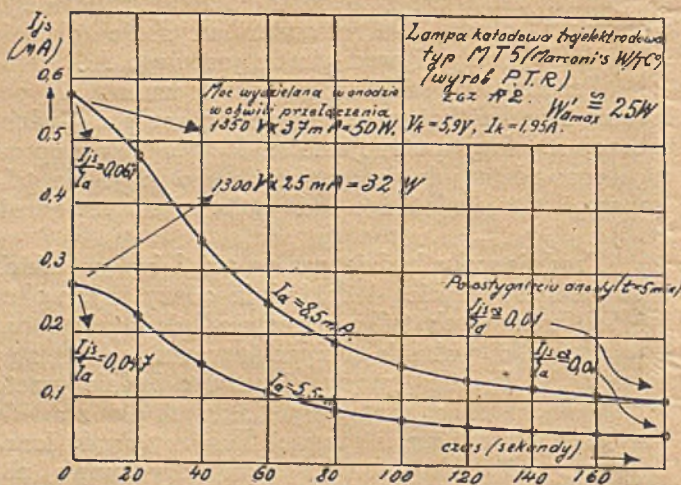 Ijs
(mA)
Lampa katodowa trójelektrodowa
typ MT5 (Marconi's W/T Cº)
(wyrób P.T.R)
V_k = 5,9V, I_k = 1,95A.
W'amax ≅ 25W
Moc wydzielana w anodzie
w chwili przełączenia
1350 V x 37mA = 50 W.
1300 V x 25 mA = 32 W
Ijs/Ia = 0,067
Ijs/Ia = 0,047
Ia = 8,5 mA.
Ia = 5,5
Po ostygnięciu anody (t=5min)
Ijs/Ia ≅ 0,01
Ijs/Ia ≅ 0,01
czas (sekundy)
0,6
0,5
0,4
0,3
0,2
0,1
0
0 20 40 60 80 100 120 140 160 180